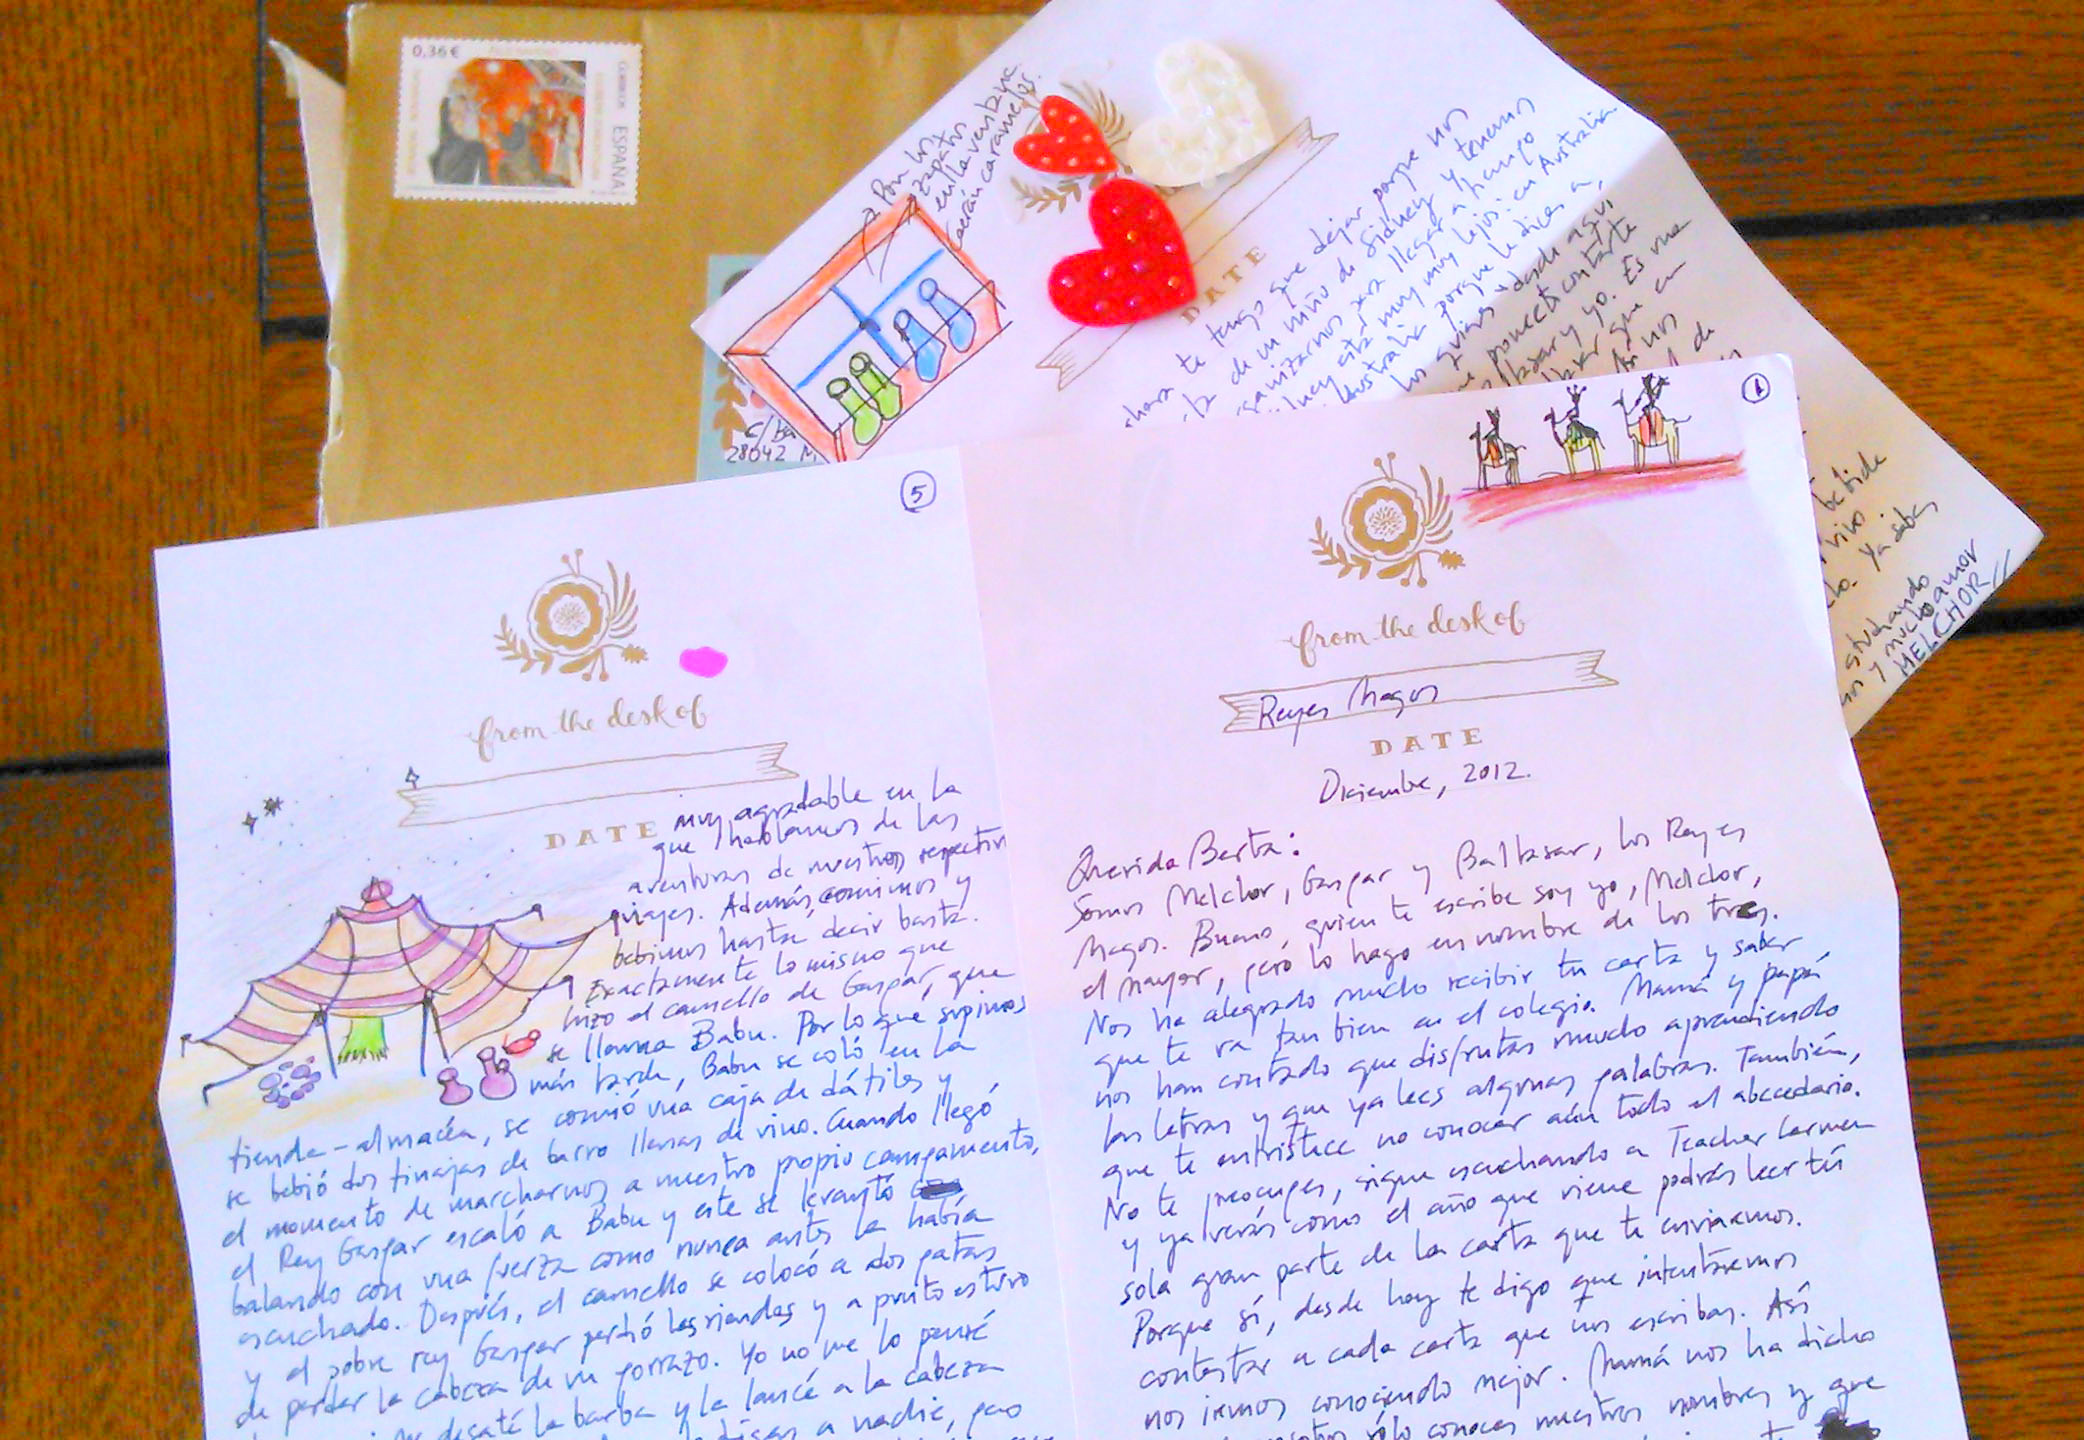 0,36 €
CORREOS
ESPAÑA
Pon los
zapatos
en la ventana
caerán caramelos.
C/
28042 M
DATE
ahora te tengo que dejar porque nos
de un niño de Sidney y tenemos
organizarnos para llegar a tiempo
Sidney está muy muy lejos: en Australia
Australia porque le dices a
los quieres desde aquí
contarte
Baltasar y yo. Es una
que en
nos
de
vino
Ya sabes
estudiando
y mucho amor
MELCHOR//
5
from the desk of
DATE
muy agradable en la
que hablamos de las
aventuras de nuestros respectivos
viajes. Además, comimos y
bebimos hasta decir basta.
Exactamente lo mismo que
hizo el camello de Gaspar, que
se llama Babu. Por lo que supimos
más tarde, Babu se coló en la
tienda-almacén, se comió una caja de dátiles y
se bebió dos tinajas de barro llenas de vino. Cuando llegó
el momento de marcharnos a nuestro propio campamento,
el Rey Gaspar escaló a Babu y este se levantó
balando con una fuerza como nunca antes la había
escuchado. Después, el camello se colocó a dos patas
y el pobre rey Gaspar perdió las riendas y a punto estuvo
de perder la cabeza de un porrazo. Yo no me lo pensé
me desaté la barba y la lancé a la cabeza
digas a nadie, pero
1
from the desk of
Reyes Magos
DATE
Diciembre, 2012.
Querida Berta:
Somos Melchor, Gaspar y Baltasar, los Reyes
Magos. Bueno, quien te escribe soy yo, Melchor,
el mayor, pero lo hago en nombre de los tres.
Nos ha alegrado mucho recibir tu carta y saber
que te va tan bien en el colegio. Mamá y papá
nos han contado que disfrutas mucho aprendiendo
las letras y que ya lees algunas palabras. También,
que te entristece no conocer aún todo el abecedario.
No te preocupes, sigue escuchando a Teacher Carmen
y ya verás como el año que viene podrás leer tú
sola gran parte de la carta que te enviaremos.
Porque sí, desde hoy te digo que intentaremos
contestar a cada carta que nos escribas. Así
nos iremos conociendo mejor. Mamá nos ha dicho
sólo conoces nuestros nombres y que